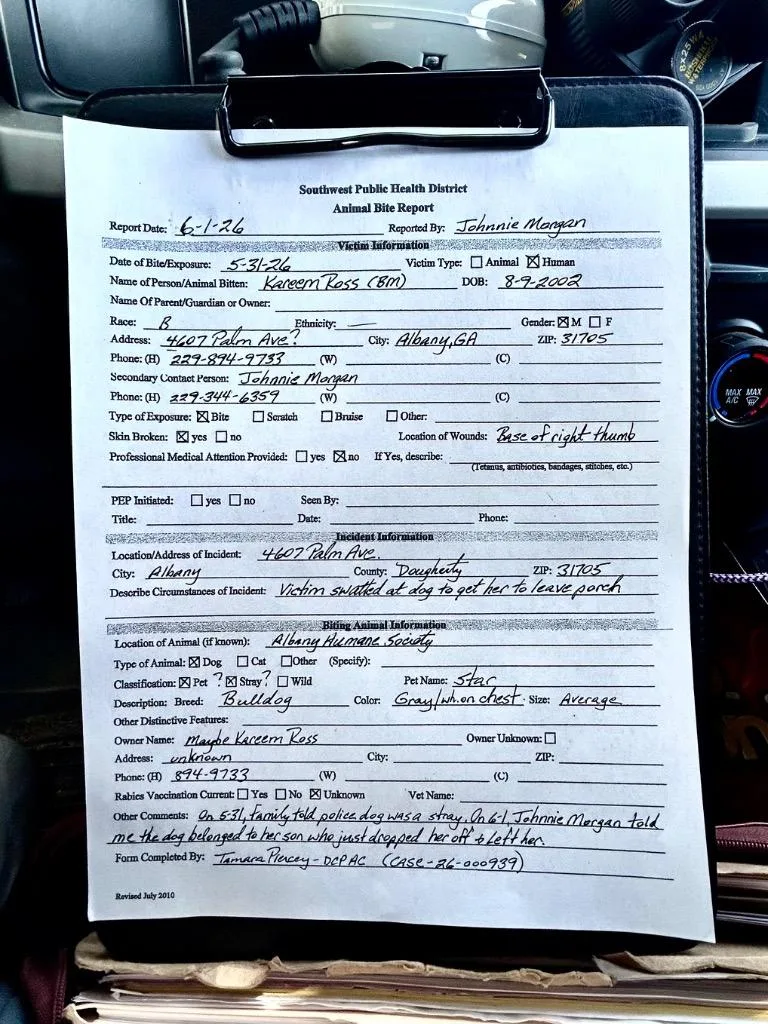 8x25 WA
Southwest Public Health District
Animal Bite Report
Report Date: 6-1-26 Reported By: Johnnie Morgan
Victim Information
Date of Bite/Exposure: 5-31-26 Victim Type: ☐ Animal ☒ Human
Name of Person/Animal Bitten: Kareem Ross (BM) DOB: 8-9-2002
Name Of Parent/Guardian or Owner:
Race: B Ethnicity: — Gender: ☒ M ☐ F
Address: 4607 Palm Ave? City: Albany, GA ZIP: 31705
Phone: (H) 229-894-9733 (W) (C)
Secondary Contact Person: Johnnie Morgan
Phone: (H) 229-344-6359 (W) (C)
Type of Exposure: ☒ Bite ☐ Scratch ☐ Bruise ☐ Other:
Skin Broken: ☒ yes ☐ no Location of Wounds: Base of right thumb
Professional Medical Attention Provided: ☐ yes ☒ no If Yes, describe:
(Tetanus, antibiotics, bandages, stitches, etc.)
PEP Initiated: ☐ yes ☐ no Seen By:
Title: Date: Phone:
Incident Information
Location/Address of Incident: 4607 Palm Ave.
City: Albany County: Dougherty ZIP: 31705
Describe Circumstances of Incident: Victim swatted at dog to get her to leave porch
Biting Animal Information
Location of Animal (if known): Albany Humane Society
Type of Animal: ☒ Dog ☐ Cat ☐ Other (Specify):
Classification: ☒ Pet ? ☒ Stray? ☐ Wild Pet Name: Star
Description: Breed: Bulldog Color: Gray/wh. on chest Size: Average
Other Distinctive Features:
Owner Name: Maybe Kareem Ross Owner Unknown: ☐
Address: unknown City: ZIP:
Phone: (H) 894-9733 (W) (C)
Rabies Vaccination Current: ☐ Yes ☐ No ☒ Unknown Vet Name:
Other Comments: On 5-31, family told police dog was a stray. On 6-1, Johnnie Morgan told
me the dog belonged to her son who just dropped her off & left her.
Form Completed By: Tamara Piercey - DCPAC (CASE-26-000939)
Revised July 2010
MAX A/C MAX